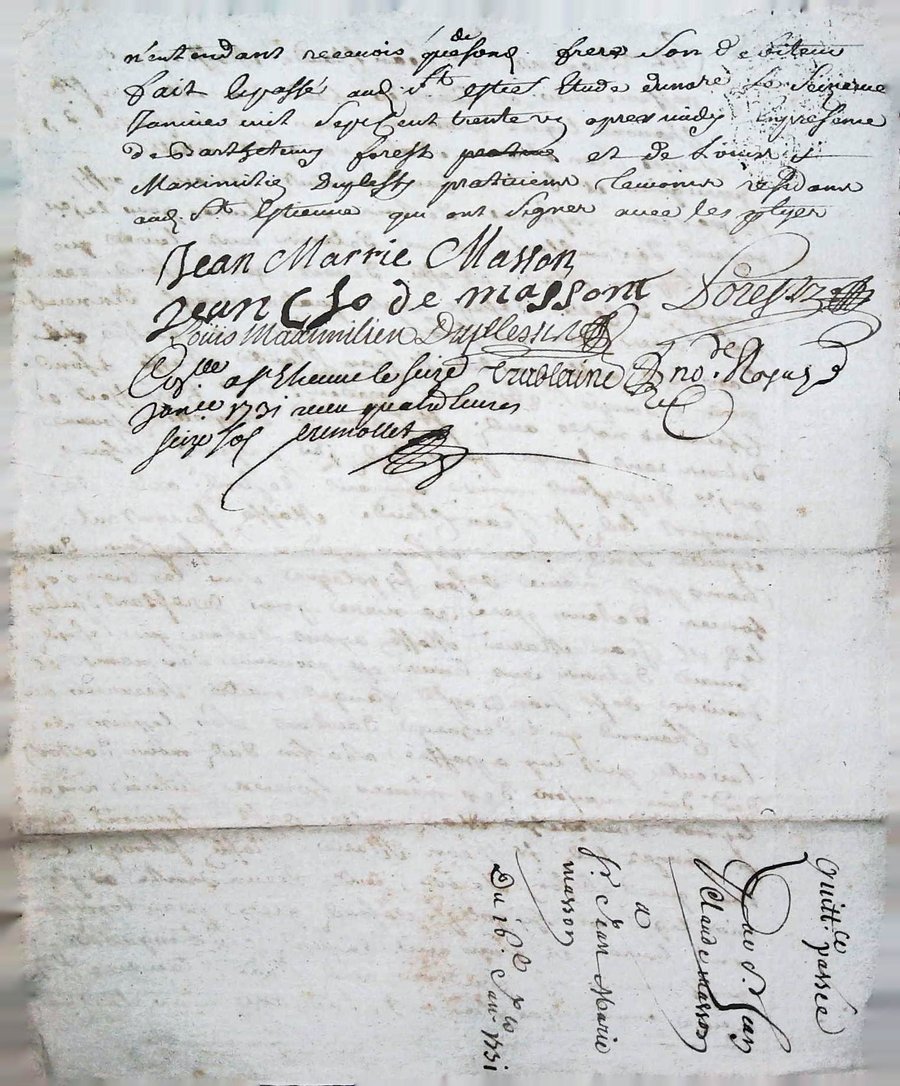 n'entendant recevois que de son d. frere son debiteur
fait & passé aud. St. estie. Etude dunore. le seizieme
Janvier mil sept cent trente un apres midy en presence
de Barthelemy forest et de Louis
Maximilien Duplessy praticiens temoins residans
aud. St. Estienne qui ont signes avec les ptyes
Jean Marrie Masson
Jean Clo de massont Forest
Louis Maximilien Duplessis
Con.lle a St. Etienne le seize Trablaine no.re
Janv.er 1731 receu quatre livres
seize sols Grimollet
quitt.ce passée
par Sr. Jean
Claude Masson
a
Sr. Jean Marie
masson
Du 16.e Janv. 1731